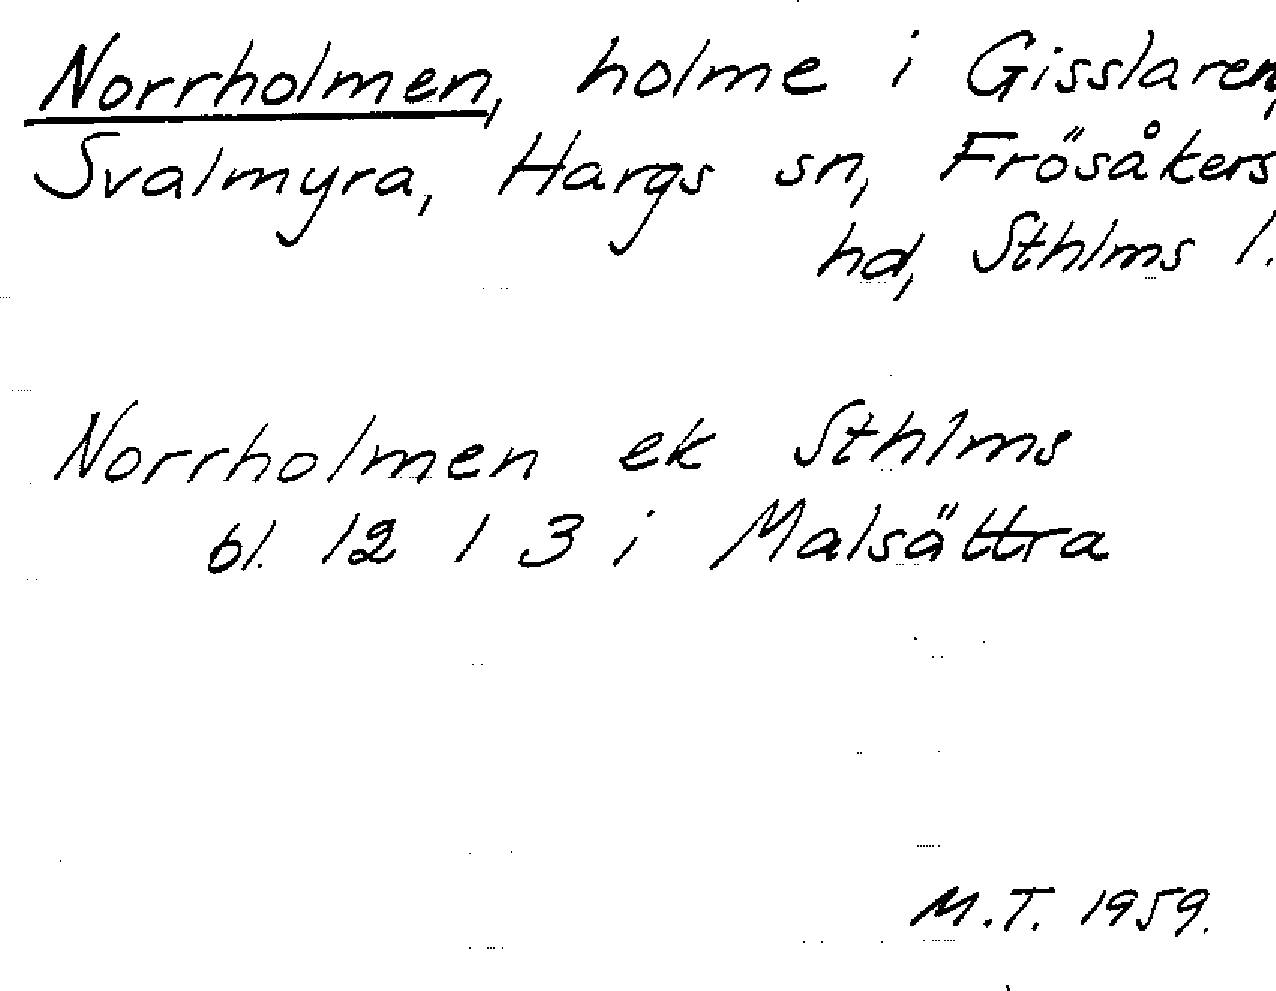 Norrholmen, holme i Gisslaren,
Svalmyra, Hargs sn, Frösåkers
hd, Sthlms l.
Norrholmen ek Sthlms
bl. 12 1 3 i Malsättra
M.T. 1959.